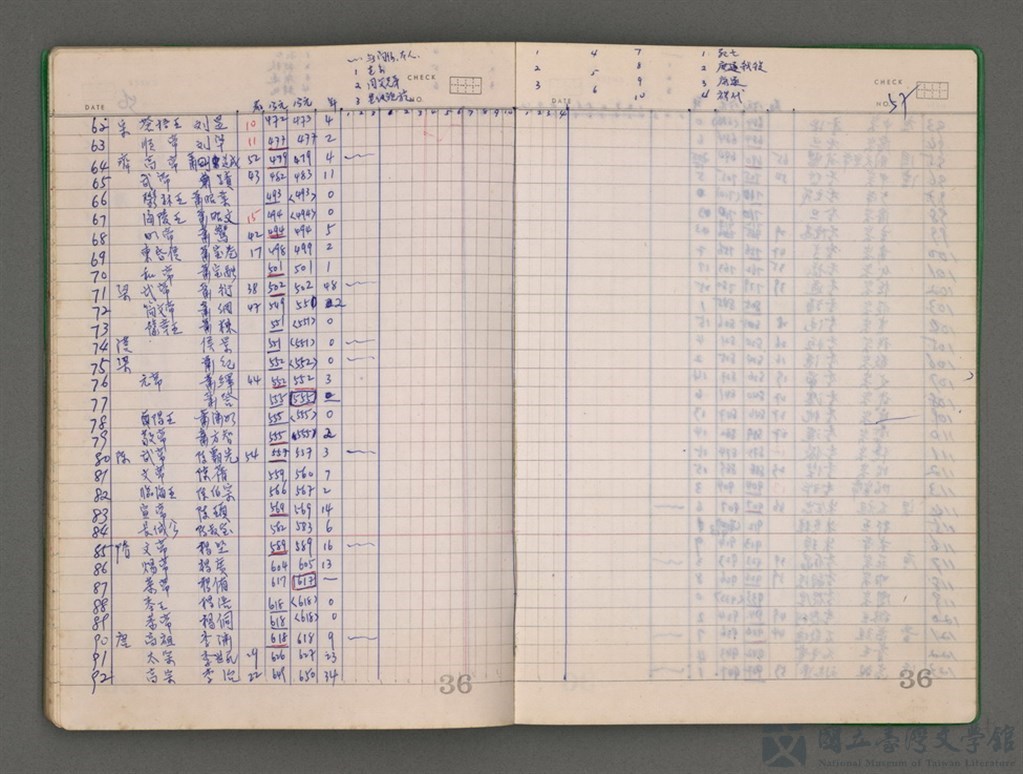 1 老死
CHECK
NO.
DATE
歲 公元 公元 年
62 宋 蒼梧王 刘昱 10 472 473 4
63 順帝 刘準 11 477 477 2
64 齊 高帝 蕭道成 52 479 479 4
65 武帝 蕭賾 43 482 483 11
66 鬱林王 蕭昭業 493 <493> 0
67 海陵王 蕭昭文 15 494 <494> 0
68 明帝 蕭鸞 42 494 494 5
69 東昏侯 蕭宝卷 17 498 499 2
70 和帝 蕭宝融 501 501 1
71 梁 武帝 蕭衍 38 502 502 48
72 簡文帝 蕭綱 47 549 550 2
73 豫章王 蕭棟 551 <551> 0
74 漢 侯景 551 <551> 0
75 梁 蕭紀 552 <552> 0
76 元帝 蕭繹 44 552 552 3
77 蕭詧 555 555
78 蕭淵明 555 <555> 0
79 敬帝 蕭方智 555 <555> 2
80 陳 武帝 陈霸先 54 557 557 3
81 文帝 陈蒨 559 560 7
82 臨海王 陈伯宗 566 567 2
83 宣帝 陈頊 569 569 14
84 長城公 陈叔宝 582 583 6
85 隋 文帝 楊堅 589 589 16
86 煬帝 楊廣 604 605 13
87 恭帝 楊侑 617 617 —
88 秦王 楊浩 618 <618> 0
89 恭帝 楊侗 618 <618> 0
90 唐 高祖 李淵 618 618 9
91 太宗 李世民 29 626 627 23
92 高宗 李治 22 649 650 34
36
1 4 7
2 5 8
3 6 9
10
1 死亡
2
3 廢
4 禪代
DATE
CHECK
NO. 57
36
國立臺灣文學館
National Museum of Taiwan Literature